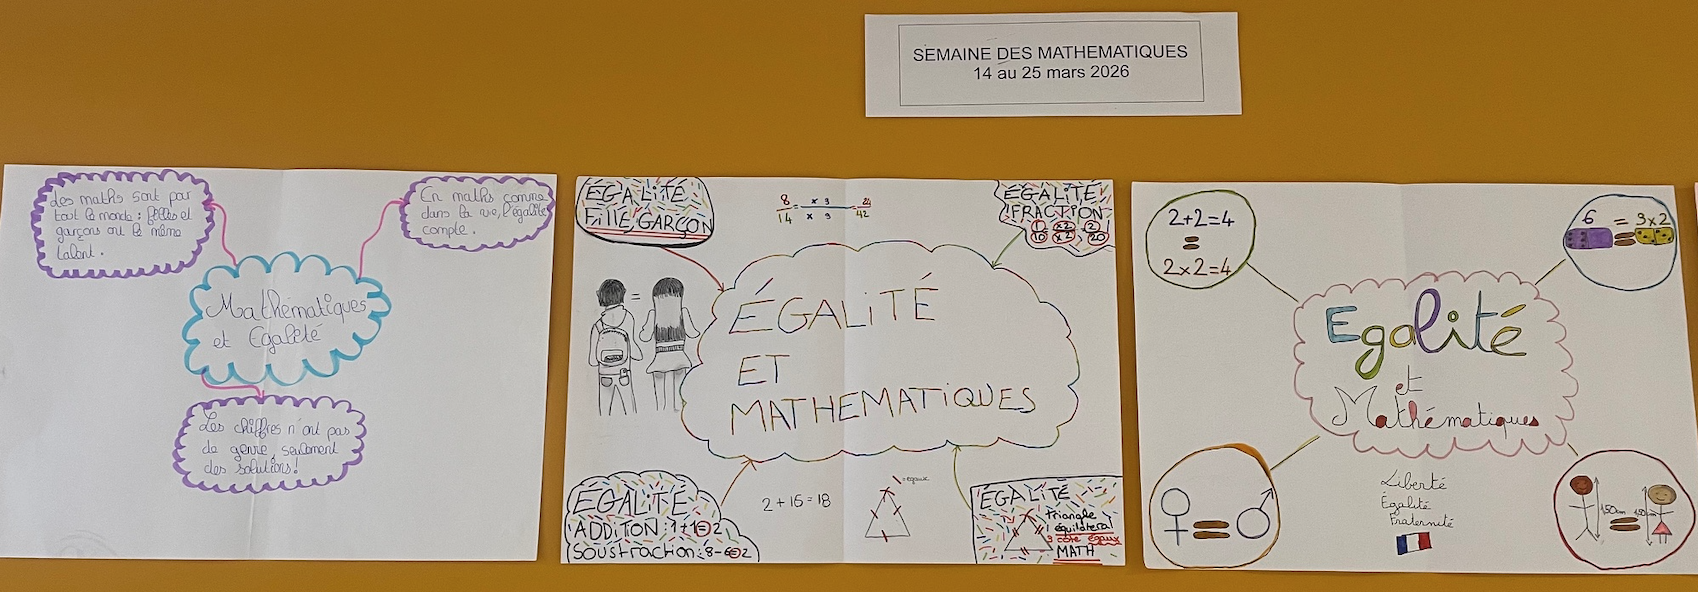 SEMAINE DES MATHEMATIQUES
14 au 25 mars 2026
Les maths sont par
tout le monde : filles et
garçons ont le même
talent.
En maths comme
dans la vie, l'égalité
compte.
Mathématiques
et Egalité
Les chiffres n'ont pas
de genre, seulement
des solutions!
ÉGALITÉ
FILLE, GARÇON
8 x 3 24
14 = x 3 = 42
ÉGALITÉ
FRACTION
1 x2 2
10 x2 20
=
ÉGALITÉ
ET
MATHEMATIQUES
ÉGALITÉ
ADDITION : 1+1=2
SOUSTRACTION : 8-6=2
2 + 16 = 18
= égaux
ÉGALITÉ
triangle
équilatéral
3 côté égaux
MATH
2+2=4
=
2x2=4
6 = 3x2
Egalité
et
Mathématiques
♀ = ♂
Liberté
Égalité
Fraternité
150cm = 150cm